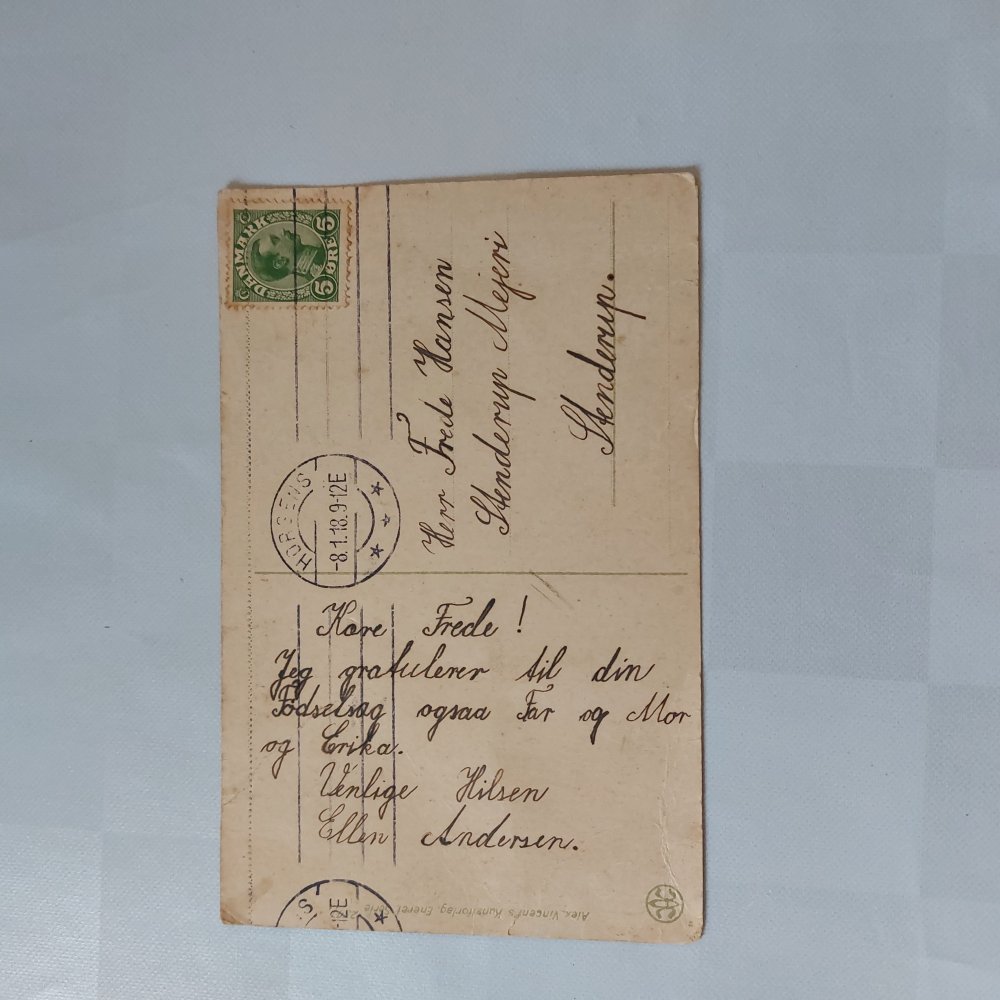 Kære Frede!
Jeg gratulerer til din
Fødselsag ogsaa Far og Mor
og Erika.
Venlige Hilsen
Ellen Andersen.
DANMARK
5 ØRE 5
HORSENS
-8.1.18.9-12E
Herr Frede Hansen
Stenderup Mejeri
Stenderup.
NS
-12E
Alex. Vincent's Kunstforlag, Eneret. Serie